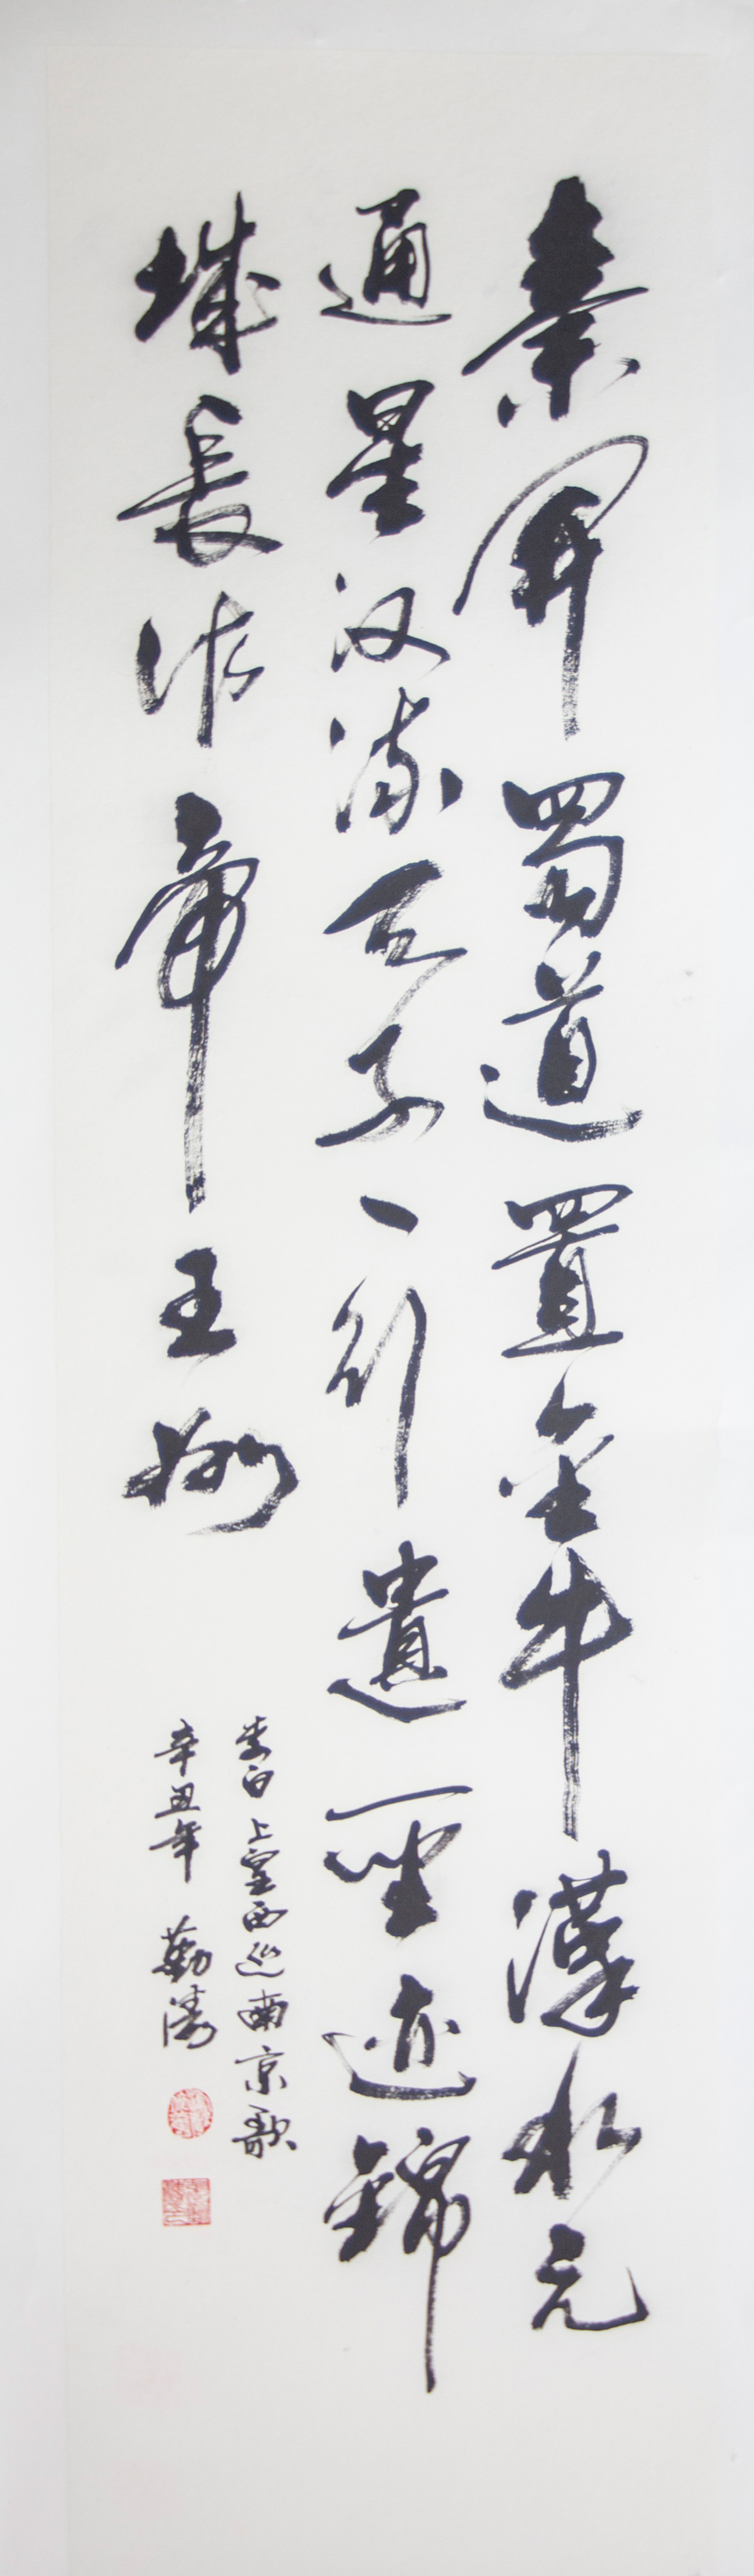 秦開蜀道置金牛漢水元
通星汉流天子一行遺聖迹錦
城長作帝王州
李白上皇西巡南京歌
辛丑年勤濤